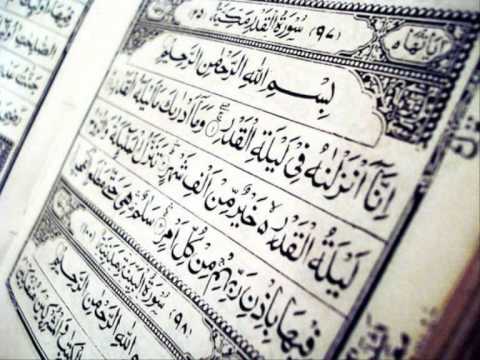 آياتها ٥ (٩٧) سُورَةُ الْقَدْرِ مَكِّيَّةٌ (٢٥)
بِسْمِ اللهِ الرَّحْمٰنِ الرَّحِيْمِ
اِنَّاۤ اَنْزَلْنٰهُ فِيْ لَيْلَةِ الْقَدْرِ وَمَاۤ اَدْرٰىكَ مَا لَيْلَةُ الْقَدْرِ
لَيْلَةُ الْقَدْرِ خَيْرٌ مِّنْ اَلْفِ شَهْرٍ تَنَزَّلُ الْمَلٰٓئِكَةُ وَالرُّوْحُ
فِيْهَا بِاِذْنِ رَبِّهِمْ مِّنْ كُلِّ اَمْرٍ سَلٰمٌ هِيَ حَتّٰى مَطْلَعِ
(٩٨) سُوْرَةُ الْبَيِّنَةِ (١٠٠)
بِسْمِ اللهِ الرَّحْمٰنِ الرَّحِيْمِ